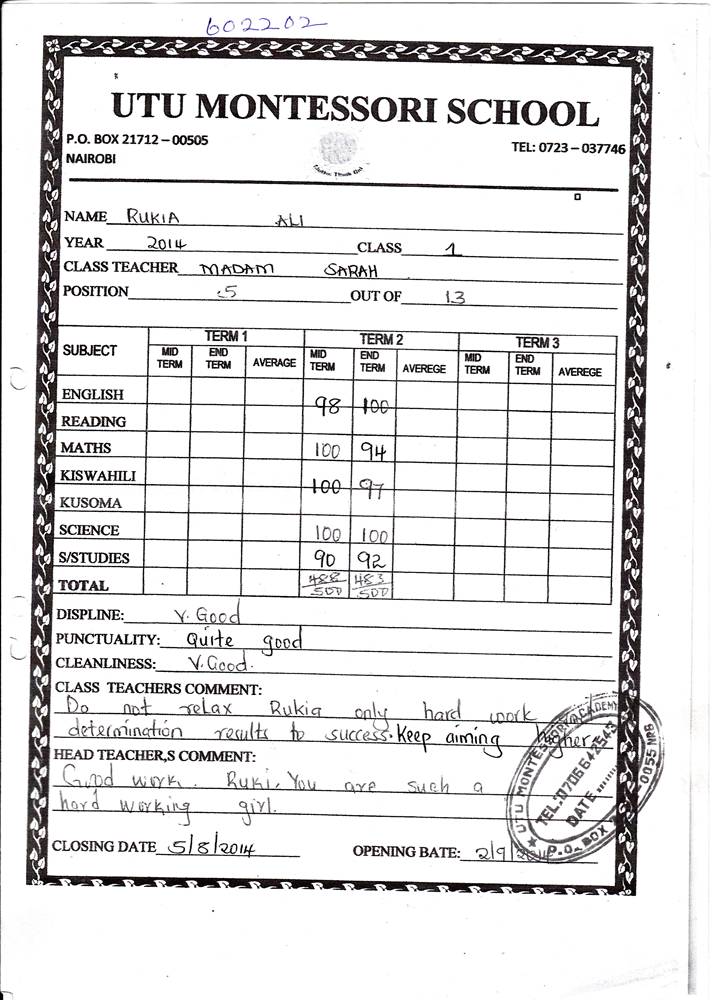 602202
UTU MONTESSORI SCHOOL
P.O. BOX 21712 – 00505
TEL: 0723 – 037746
NAIROBI
NAME RUKIA ALI
YEAR 2014 CLASS 1
CLASS TEACHER MADAM SARAH
POSITION 5 OUT OF 13
SUBJECT TERM 1 TERM 2 TERM 3
MID TERM END TERM AVERAGE MID TERM END TERM AVEREGE MID TERM END TERM AVEREGE
ENGLISH 98 100
READING
MATHS 100 94
KISWAHILI 100 97
KUSOMA
SCIENCE 100 100
S/STUDIES 90 92
TOTAL 488/500 483/500
DISPLINE: V. Good
PUNCTUALITY: Quite good
CLEANLINESS: V. Good.
CLASS TEACHERS COMMENT:
Do not relax Rukia only hard work
determination results to success. Keep aiming higher.
HEAD TEACHER,S COMMENT:
Good work. Ruki. You are such a
hard working girl.
CLOSING DATE 5/8/2014 OPENING BATE: 2/9/2014
UTU MONTESSORI ACADEMY
TEL: 0706642549
DATE
P.O. BOX
0055 NRB